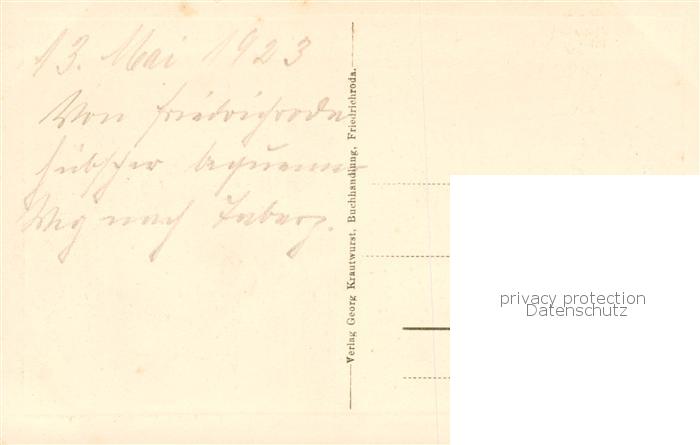 13. Mai 1923
Von Friedrichroda
hübscher bequemer
Weg nach Tabarz.
Verlag Georg Krautwurst, Buchhandlung, Friedrichroda.
privacy protection
Datenschutz